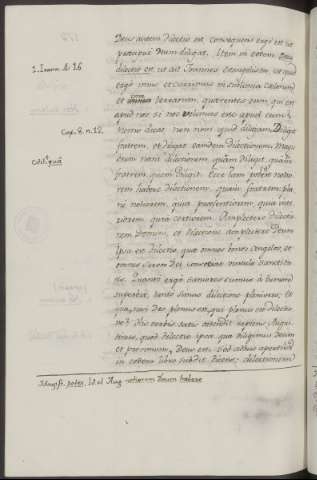 Deus autem dilectio est. consequens ergo est ut
Deum diligat. Item in eodem Deus
1. Joann. 4. 16
dilectio est ut ait Joannes evangelista ut quid
ergo imus et currimus in sublimia caelorum
et ima terrarum, quaerentes eum, qui est
apud nos si nos velimus esse apud eum
Cap. 8. n. 12.
Nemo dicat non novi quid diligam. Diligat
fratrem, et diliget eamdem dilectionem. Magis
enim novit dilectionem, quam diligit, quam
fratrem quem diligit. Ecce jam potest notio
rem habere dilectionem, quam fratrem, pla
ne notiorem, quia praesentiorem, quia inte
riorem, quia certiorem. Amplectere dilectio
nem Domini, et dilectione amplectere Deum
Ipsa est dilectio, quae omnes bonos Angelos, et
omnes servos Dei consociat vinculo sanctita
tis. Quanto ergo saniores sumus a tumore
superbiae, tanto sumus dilectione pleniores. Et
quo, nisi Deo plenus est, qui plenus est dilectio
ne? His verbis satis ostendit Augus
tinus, quod dilectio ipsa, qua diligimus Deum
et proximum, Deus est. sed adhuc apertius
in eodem libro subdit dicens; dilectionem
Magist. potest, id est Aug. notiorem Deum habere